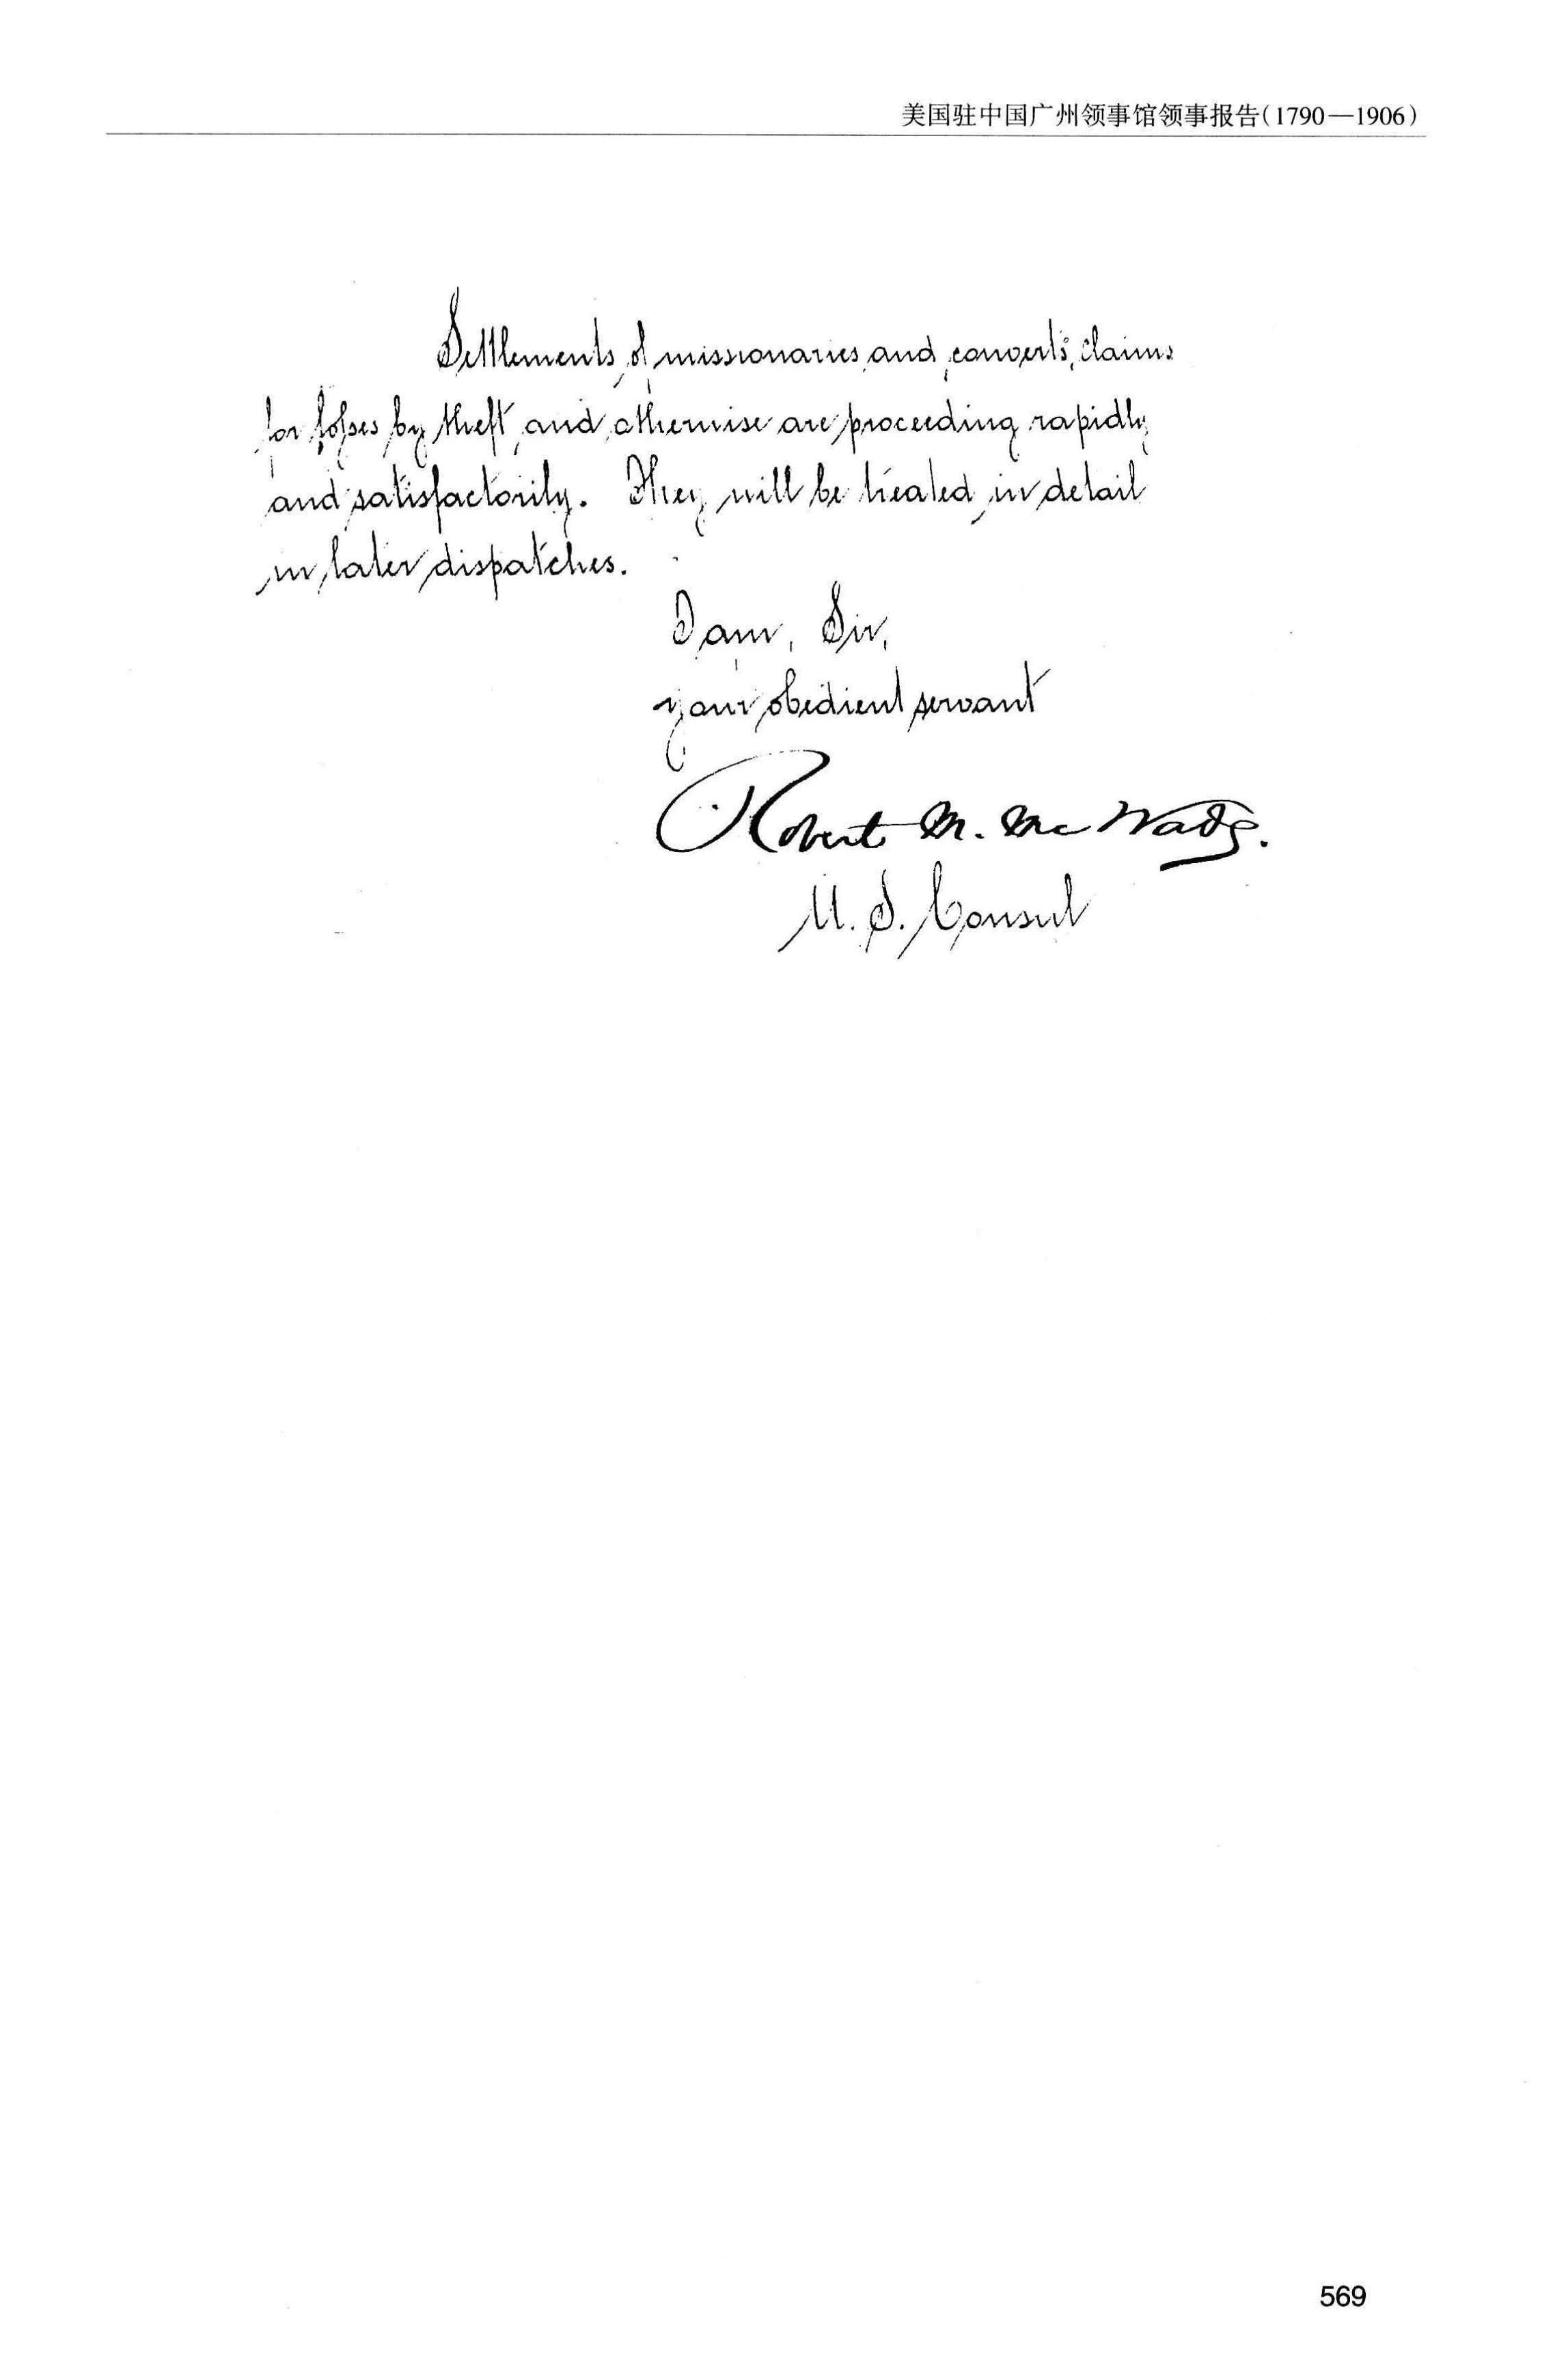 美国驻中国广州领事馆领事报告(1790—1906)
Settlements of missionaries and converts' claims
for losses by theft and otherwise are proceeding rapidly
and satisfactorily. They will be treated in detail
in later dispatches.
I am, Sir,
your obedient servant
Robert M. McWade.
U. S. Consul
569